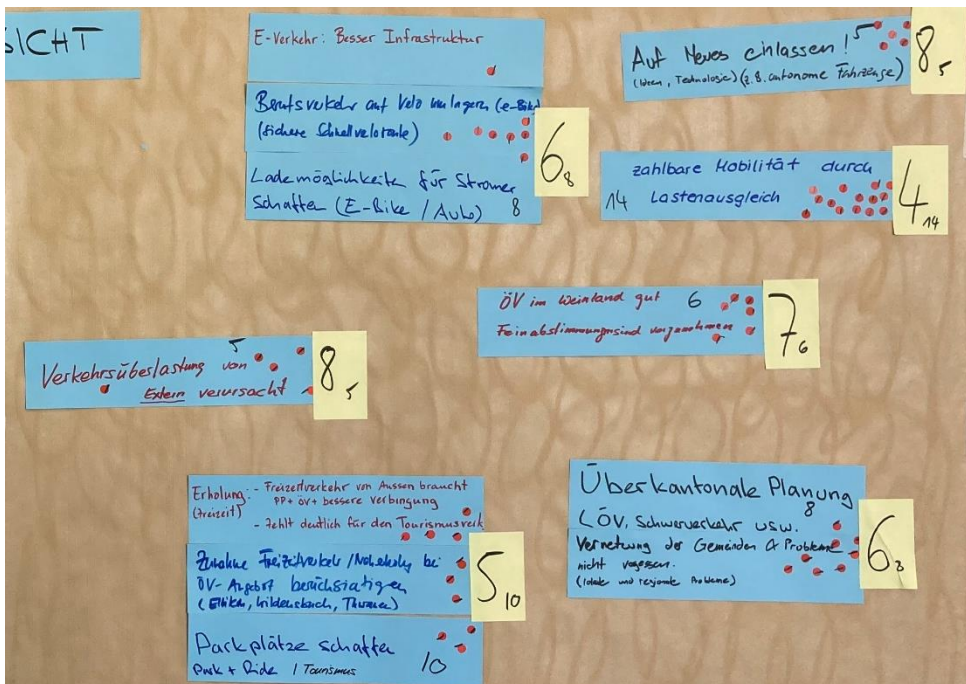 SICHT
E-Verkehr: Besser Infrastruktur
Berufsverkehr auf Velo umlagern (e-Bike)
(sichere Schnellveloroute)
Lademöglichkeiten für Stromer
schaffen (E-Bike / Auto) 8
6 8
Auf Neues einlassen! 5
(Ideen, Technologie) (z.B. autonome Fahrzeuge)
8 5
zahlbare Mobilität durch
14 Lastenausgleich
4 14
ÖV im Weinland gut 6
Feinabstimmung sind vorzunehmen
7 6
5
Verkehrsüberlastung von
Extern verursacht
8 5
Erholung: - Freizeitverkehr von Aussen braucht
(Freizeit) PP + ÖV + bessere Verbingung
- Zehlt deutlich für den Tourismusverk
Zunahme Freizeitverkehr / Naherholung bei
ÖV-Angebot berücksichtigen
(Ellikon, Wildensbuch, Thurauen)
Parkplätze schaffen
Park + Ride / Tourismus 10
5 10
Überkantonale Planung
8
(ÖV, Schwerverkehr usw.
Vernetzung der Gemeinden & Probleme
nicht vergessen.
(lokale und regionale Probleme)
6 8